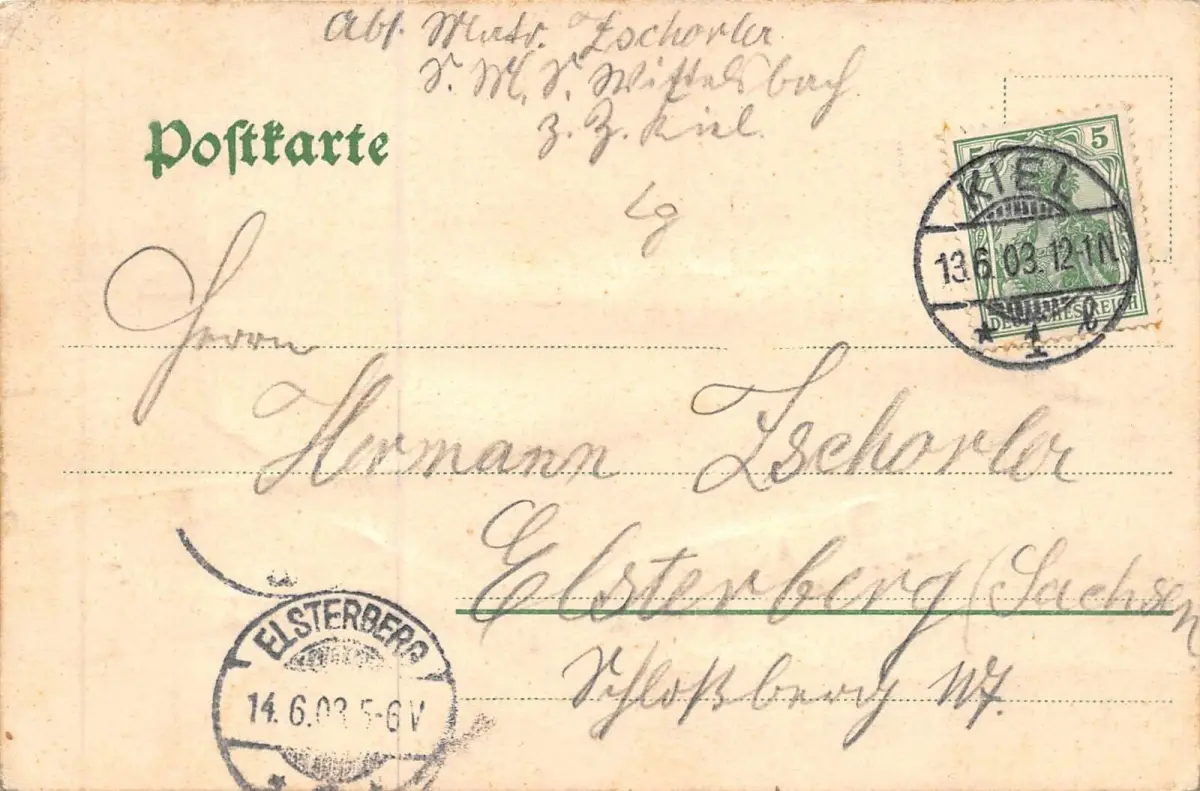 Abs. Matr. Zschorler
S. M. S. Wittelsbach
z. Z. Kiel.
Postkarte
5
5
KIEL
13.6.03.12-1N
DEUTSCHES REICH
* 1 e
Herrn
Hermann Zschorler
Elsterberg (Sachsen
Schloßberg
ELSTERBERG
14.6.03 5-6V